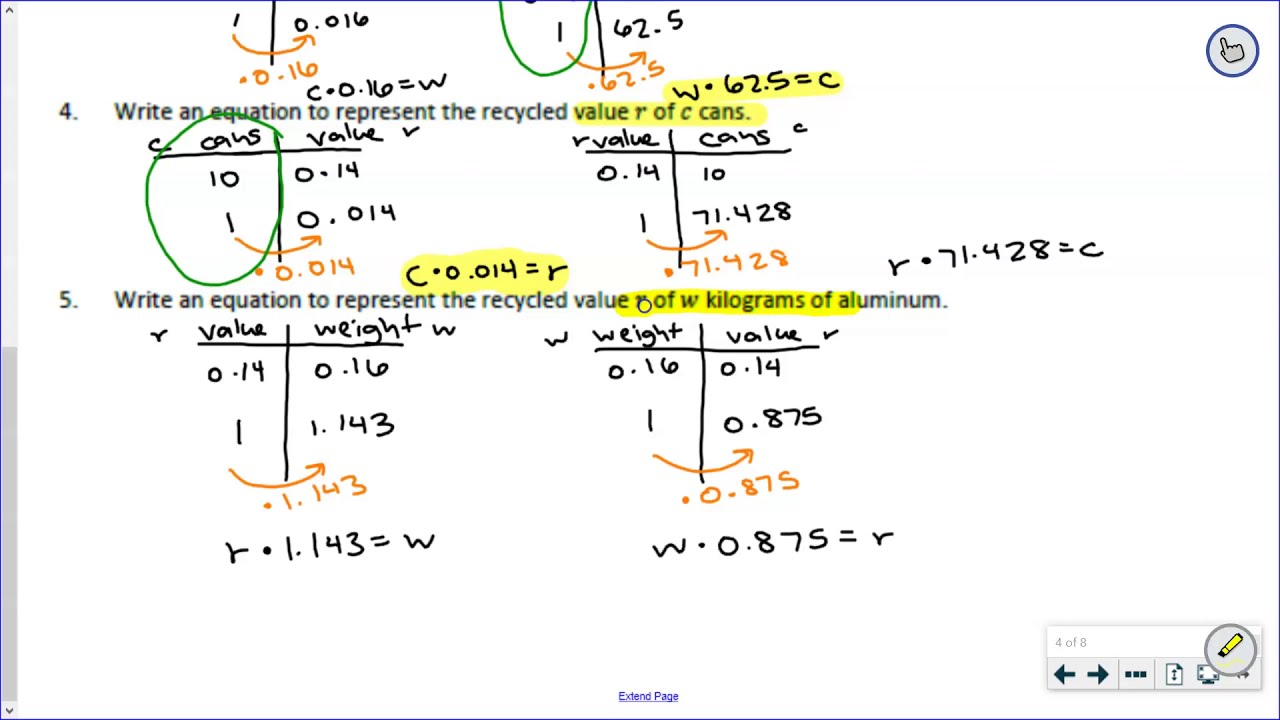 1 0.016
1 62.5
·0.16
·62.5
c·0.16=w
w·62.5=c
4. Write an equation to represent the recycled value r of c cans.
c cans value r
r value cans c
10 0.14
0.14 10
1 0.014
1 71.428
·0.014
·71.428
c·0.014=r
r·71.428=c
5. Write an equation to represent the recycled value r of w kilograms of aluminum.
r value weight w
w weight value r
0.14 0.16
0.16 0.14
1 1.143
1 0.875
·1.143
·0.875
r·1.143=w
w·0.875=r
4 of 8
Extend Page